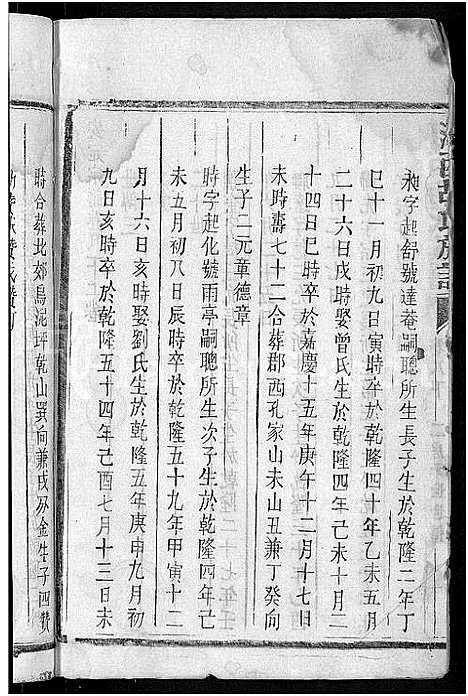 昶字起舒號達菴嗣聰所生長子生於乾隆二年丁
巳十一月初九日寅時卒於乾隆四十年乙未五月
二十六日戌時娶曾氏生於乾隆四年己未十月二
十四日巳時卒於嘉慶十五年庚午十二月十七日
未時壽七十二合葬郡西孔家山未山丑兼丁癸向
生子二元章德章
時字起化號雨亭嗣聰所生次子生於乾隆四年己
未五月初八日辰時卒於乾隆五十九年甲寅十二
月十六日亥時娶劉氏生於乾隆五年庚申九月初
九日亥時卒於乾隆五十四年己酉七月十三日未
時合葬北郊烏泥坪乾山巽向兼戌外金生子四贊